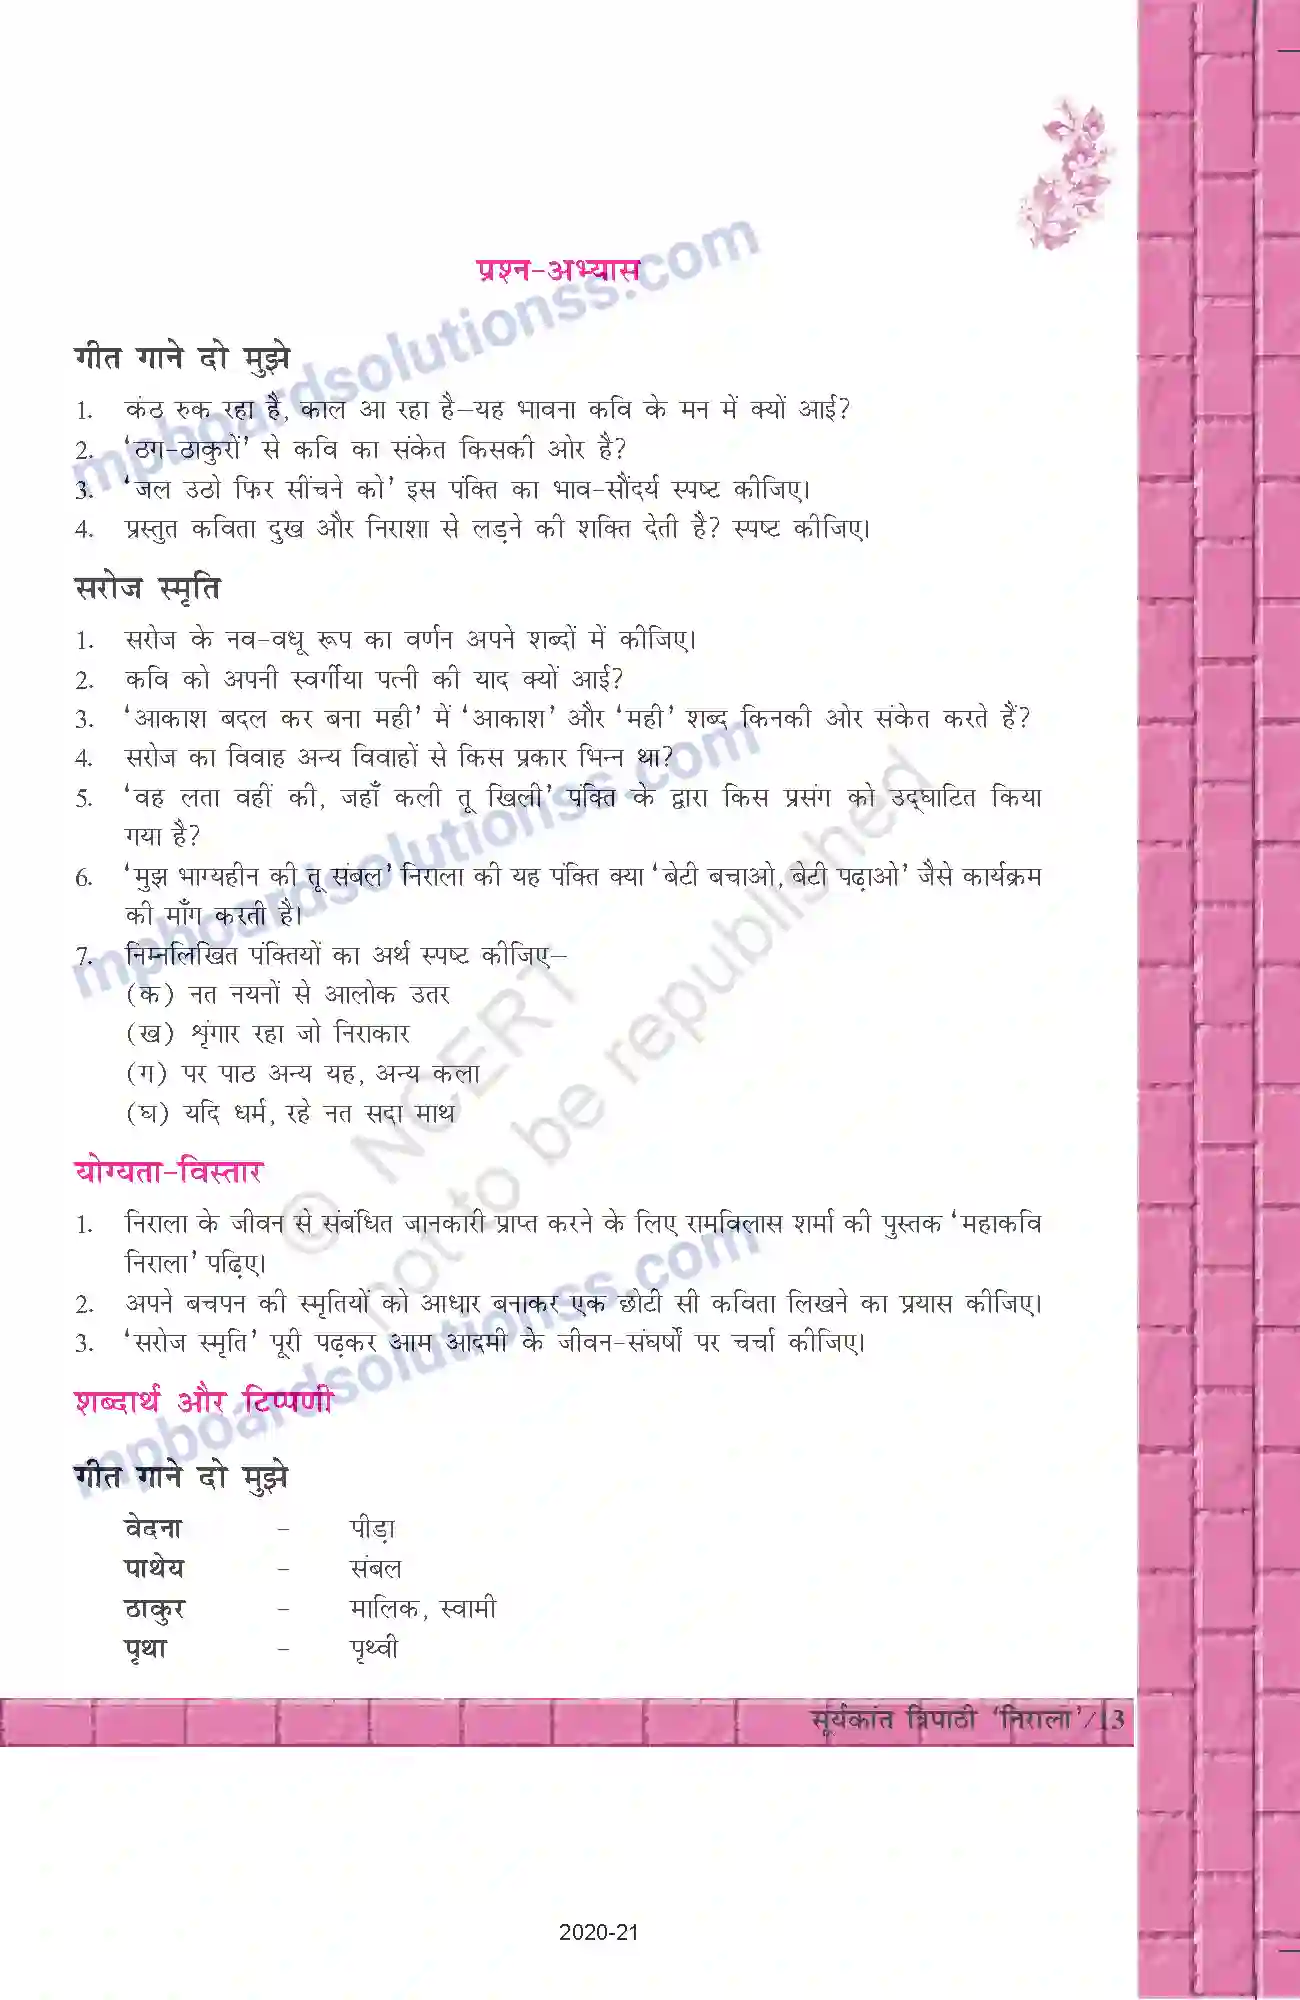 प्रश्न-अभ्यास
गीत गाने दो मुझे
1. कंठ रुक रहा है, काल आ रहा है—यह भावना कवि के मन में क्यों आई?
2. ‘ठग-ठाकुरों’ से कवि का संकेत किसकी ओर है?
3. ‘जल उठो फिर सींचने को’ इस पंक्ति का भाव-सौंदर्य स्पष्ट कीजिए।
4. प्रस्तुत कविता दुख और निराशा से लड़ने की शक्ति देती है? स्पष्ट कीजिए।
सरोज स्मृति
1. सरोज के नव-वधू रूप का वर्णन अपने शब्दों में कीजिए।
2. कवि को अपनी स्वर्गीया पत्नी की याद क्यों आई?
3. ‘आकाश बदल कर बना मही’ में ‘आकाश’ और ‘मही’ शब्द किनकी ओर संकेत करते हैं?
4. सरोज का विवाह अन्य विवाहों से किस प्रकार भिन्न था?
5. ‘वह लता वहीं की, जहाँ कली तू खिली’ पंक्ति के द्वारा किस प्रसंग को उद्घाटित किया
गया है?
6. ‘मुझ भाग्यहीन की तू संबल’ निराला की यह पंक्ति क्या ‘बेटी बचाओ, बेटी पढ़ाओ’ जैसे कार्यक्रम
की माँग करती है।
7. निम्नलिखित पंक्तियों का अर्थ स्पष्ट कीजिए—
(क) नत नयनों से आलोक उतर
(ख) शृंगार रहा जो निराकार
(ग) पर पाठ अन्य यह, अन्य कला
(घ) यदि धर्म, रहे नत सदा माथ
योग्यता-विस्तार
1. निराला के जीवन से संबंधित जानकारी प्राप्त करने के लिए रामविलास शर्मा की पुस्तक ‘महाकवि
निराला’ पढ़िए।
2. अपने बचपन की स्मृतियों को आधार बनाकर एक छोटी सी कविता लिखने का प्रयास कीजिए।
3. ‘सरोज स्मृति’ पूरी पढ़कर आम आदमी के जीवन-संघर्षों पर चर्चा कीजिए।
शब्दार्थ और टिप्पणी
गीत गाने दो मुझे
वेदना - पीड़ा
पाथेय - संबल
ठाकुर - मालिक, स्वामी
पृथा - पृथ्वी
सूर्यकांत त्रिपाठी ‘निराला’/13
2020-21
mpboardsolutionss.com
mpboardsolutionss.com
mpboardsolutionss.com
© NCERT
not to be republished